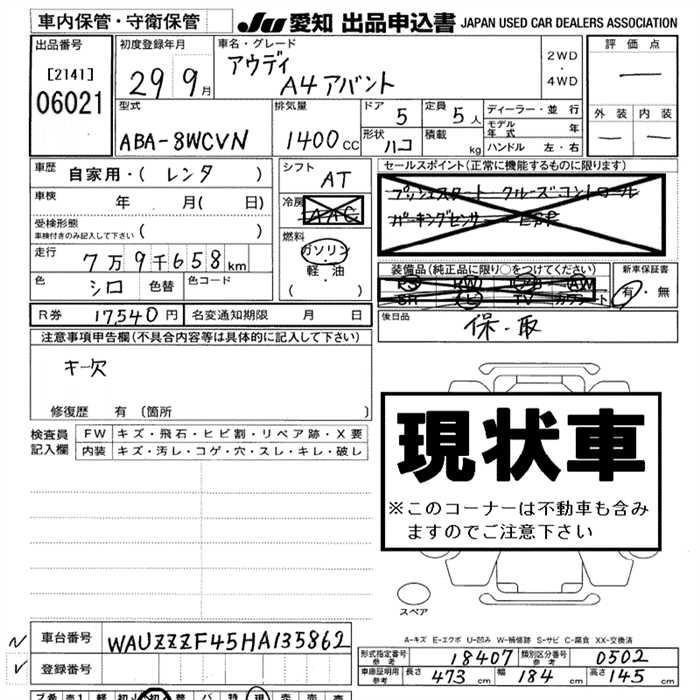 車内保管・守衛保管
JU 愛知 出品申込書 JAPAN USED CAR DEALERS ASSOCIATION
出品番号
[2141]
06021
初度登録年月
29 9月
車名・グレード
アウディ
A4 アバント
2WD
・
4WD
評価点
―
外装 内装
― ―
型式
ABA-8WCVN
排気量
1400cc
ドア 5
形状 ハコ
定員 5人
積載 kg
ディーラー・並行
モデル年式 年
ハンドル 左・右
車歴 自家用・( レンタ )
車検 年 月( 日)
受検形態
車検付きのみ記入して下さい ( )
走行 7万9千658km
色 シロ 色替 色コード
シフト AT
冷房 AAC
燃料
ガソリン
・
軽・油
( )
セールスポイント(正常に機能するものに限ります)
プッシュスタート クルーズコントロール
パーキングセンサー
装備品(純正品に限り○をつけてください)
PS PW AW
SR TV カワシート
新車保証書
有・無
R券 17,540円 名変通知期限 月 日
後日品
保・取
注意事項申告欄(不具合内容等は具体的に記入して下さい)
キー欠
修復歴 有 〔箇所 〕
検査員
記入欄
FW キズ・飛石・ヒビ割・リペア跡・X要
内装 キズ・汚レ・コゲ・穴・スレ・キレ・破レ
現状車
※このコーナーは不動車も含み
ますのでご注意下さい
スペア
A-キズ E-エクボ U-凹み W-補修跡 S-サビ C-腐食 XX-交換済
車台番号 WAUZZZF45HA135862
登録番号
形式指定番号 参考 18407 類別区分番号 参考 0502
車庫証明用 参考 長さ 473cm 幅 184cm 高さ 145cm